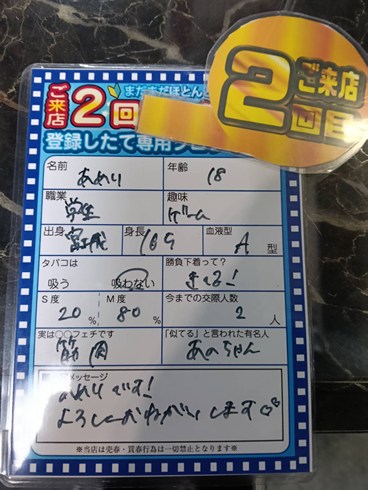 まだまだほとん
ご来店
2回
登録したて専用プ
ご来店
2回目
名前 あめり 年齢 18
職業 学生 趣味 ゲーム
出身 宮城 身長 169 血液型 A 型
タバコは 勝負下着って?
吸う 吸わない きてる!
S度 M度 今までの交際人数
20% 80% 2人
実は〇〇フェチです 「似てる」と言われた有名人
筋肉 あのちゃん
メッセージ
めりです!
よろしくおねがいします♡
※当店は売春・買春行為は一切禁止となります※